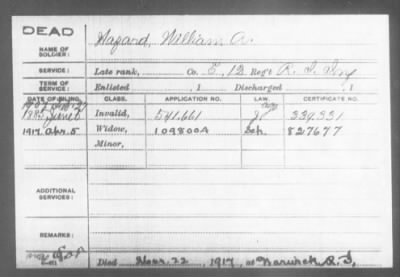 DEAD
NAME OF SOLDIER: Hazard, William A.
SERVICE: Late rank, Co. E, 12 Reg't R. I. Inf
TERM OF SERVICE: Enlisted , 1 Discharged , 1
DATE OF FILING. CLASS. APPLICATION NO. LAW. CERTIFICATE NO.
1885 June 6 Invalid, 541.661 339.331
1917 Apr. 5 Widow, 1098004 827677
Minor,
ADDITIONAL SERVICES:
REMARKS:
Died 22, 1917, at Warwick R. I.